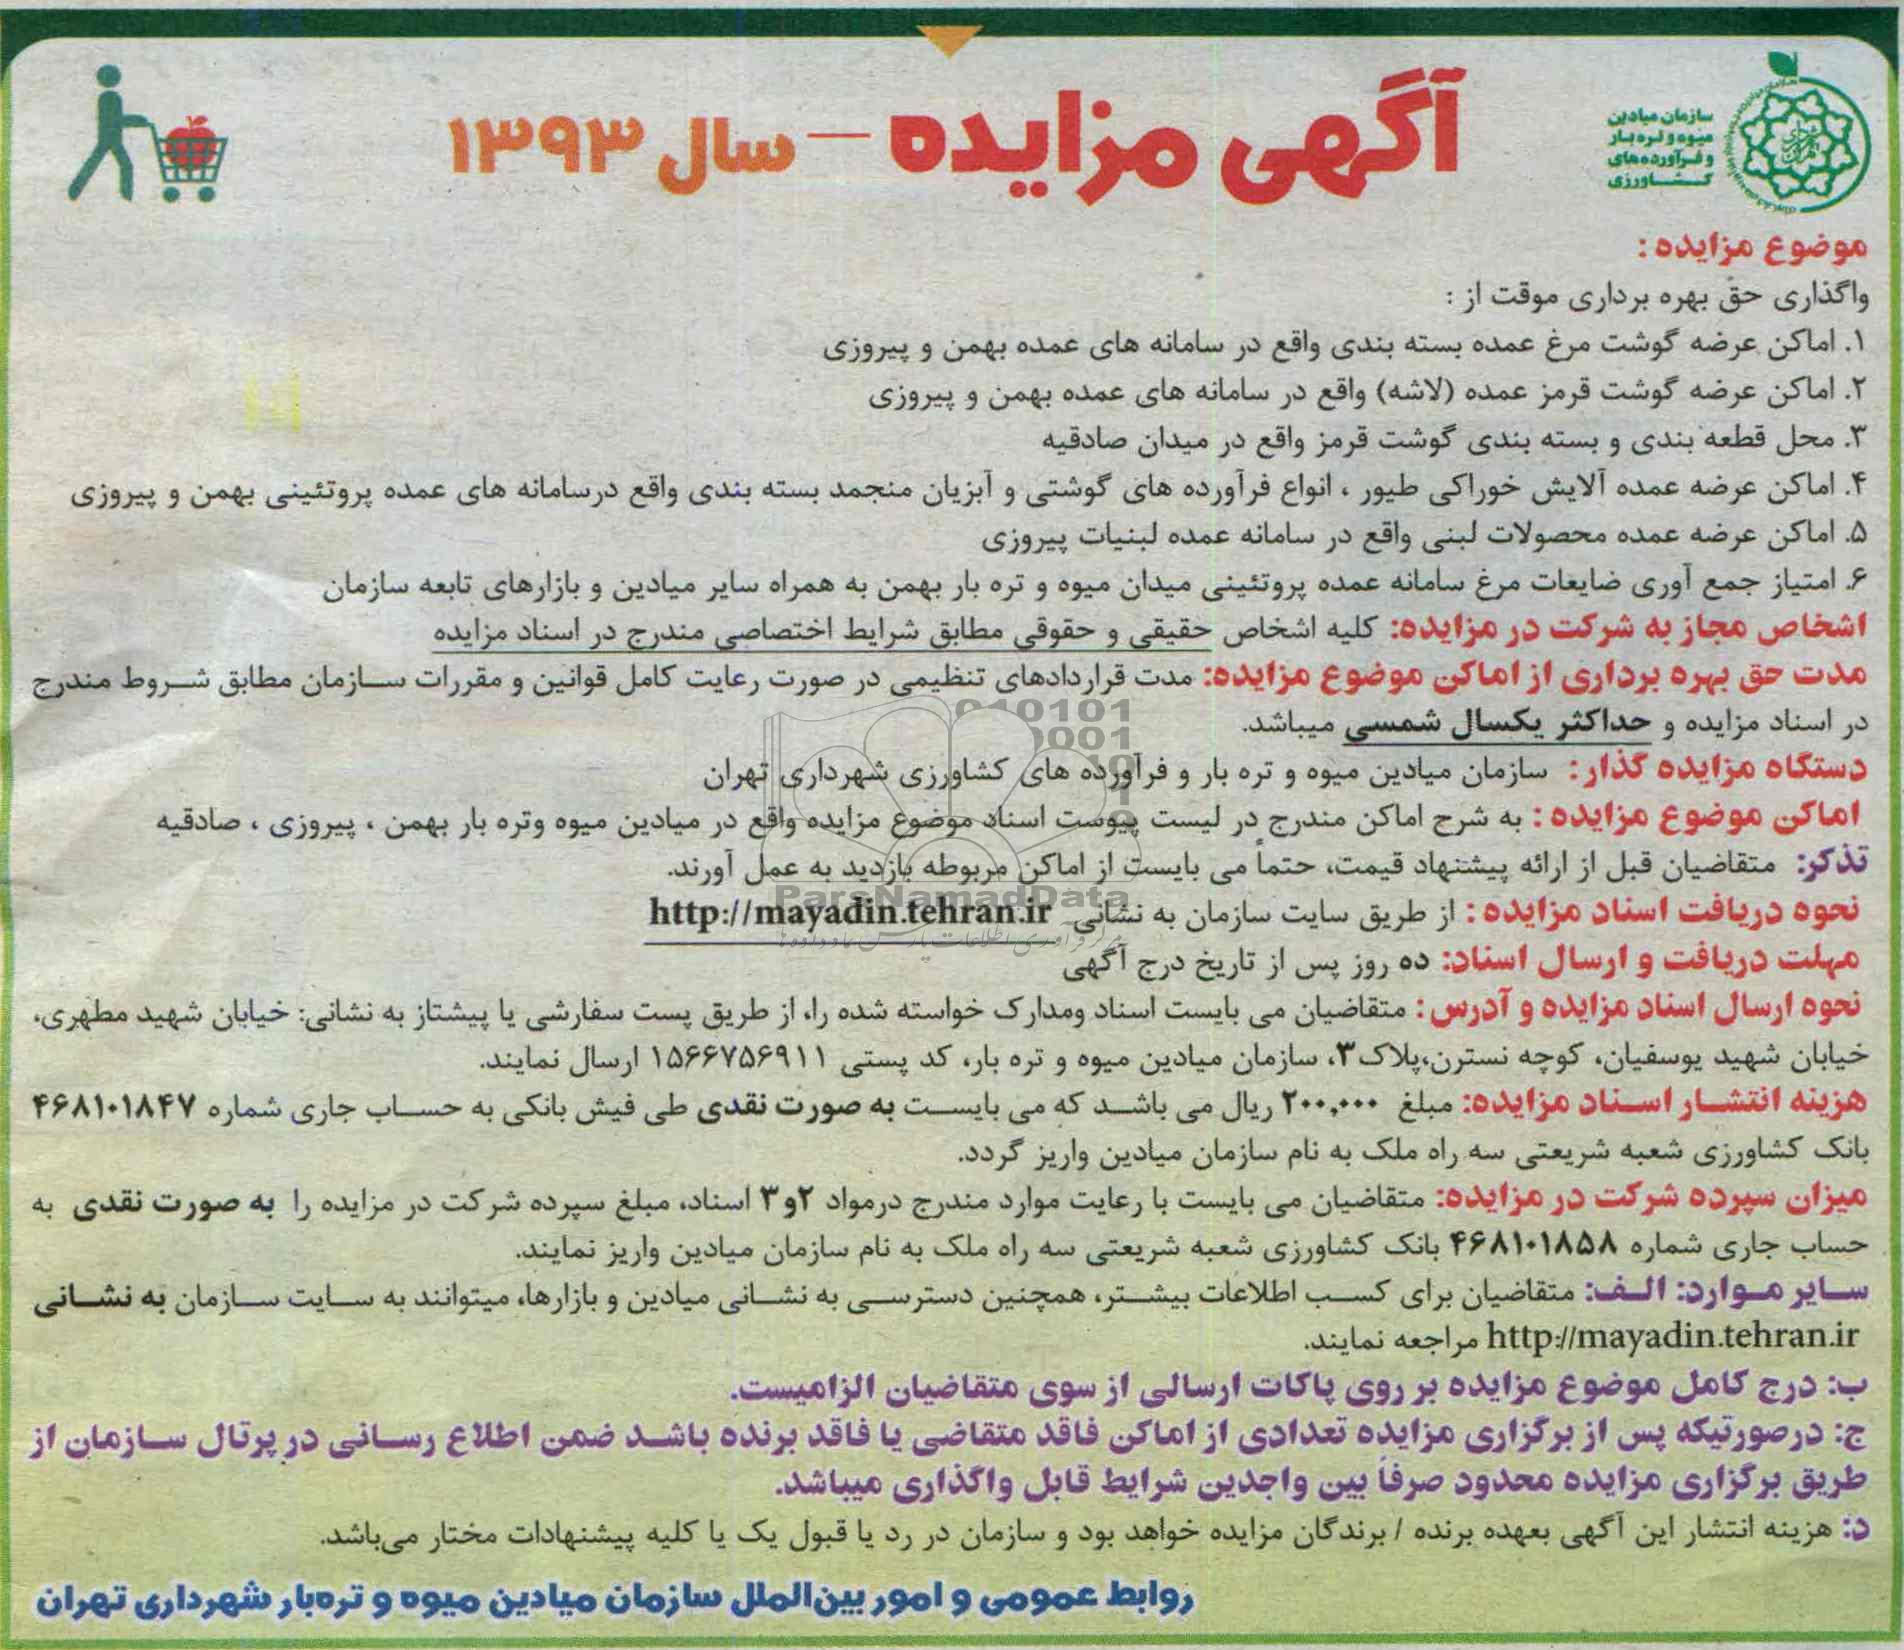 سازمان میادین
میوه و تره بار
و فرآورده‌های
کشاورزی
آگهی مزایده – سال ۱۳۹۳
موضوع مزایده :
واگذاری حق بهره برداری موقت از :
۱. اماکن عرضه گوشت مرغ عمده بسته بندی واقع در سامانه های عمده بهمن و پیروزی
۲. اماکن عرضه گوشت قرمز عمده (لاشه) واقع در سامانه های عمده بهمن و پیروزی
۳. محل قطعه بندی و بسته بندی گوشت قرمز واقع در میدان صادقیه
۴. اماکن عرضه عمده آلایش خوراکی طیور ، انواع فرآورده های گوشتی و آبزیان منجمد بسته بندی واقع درسامانه های عمده پروتئینی بهمن و پیروزی
۵. اماکن عرضه عمده محصولات لبنی واقع در سامانه عمده لبنیات پیروزی
۶. امتیاز جمع آوری ضایعات مرغ سامانه عمده پروتئینی میدان میوه و تره بار بهمن به همراه سایر میادین و بازارهای تابعه سازمان
اشخاص مجاز به شرکت در مزایده: کلیه اشخاص حقیقی و حقوقی مطابق شرایط اختصاصی مندرج در اسناد مزایده
مدت حق بهره برداری از اماکن موضوع مزایده: مدت قراردادهای تنظیمی در صورت رعایت کامل قوانین و مقررات سازمان مطابق شروط مندرج
در اسناد مزایده و حداکثر یکسال شمسی میباشد.
دستگاه مزایده گذار : سازمان میادین میوه و تره بار و فرآورده های کشاورزی شهرداری تهران
اماکن موضوع مزایده : به شرح اماکن مندرج در لیست پیوست اسناد موضوع مزایده واقع در میادین میوه وتره بار بهمن ، پیروزی ، صادقیه
تذکر: متقاضیان قبل از ارائه پیشنهاد قیمت، حتماً می بایست از اماکن مربوطه بازدید به عمل آورند.
ParsNamadData
نحوه دریافت اسناد مزایده : از طریق سایت سازمان به نشانی http://mayadin.tehran.ir
مهلت دریافت و ارسال اسناد: ده روز پس از تاریخ درج آگهی
نحوه ارسال اسناد مزایده و آدرس : متقاضیان می بایست اسناد ومدارک خواسته شده را، از طریق پست سفارشی یا پیشتاز به نشانی: خیابان شهید مطهری،
خیابان شهید یوسفیان، کوچه نسترن،پلاک۳، سازمان میادین میوه و تره بار، کد پستی ۱۵۶۶۷۵۶۹۱۱ ارسال نمایند.
هزینه انتشار اسناد مزایده: مبلغ ۲۰۰,۰۰۰ ریال می باشد که می بایست به صورت نقدی طی فیش بانکی به حساب جاری شماره ۴۶۸۱۰۱۸۴۷
بانک کشاورزی شعبه شریعتی سه راه ملک به نام سازمان میادین واریز گردد.
میزان سپرده شرکت در مزایده: متقاضیان می بایست با رعایت موارد مندرج درمواد ۲و۳ اسناد، مبلغ سپرده شرکت در مزایده را به صورت نقدی به
حساب جاری شماره ۴۶۸۱۰۱۸۵۸ بانک کشاورزی شعبه شریعتی سه راه ملک به نام سازمان میادین واریز نمایند.
سایر موارد: الف: متقاضیان برای کسب اطلاعات بیشتر، همچنین دسترسی به نشانی میادین و بازارها، میتوانند به سایت سازمان به نشانی
http://mayadin.tehran.ir مراجعه نمایند.
ب: درج کامل موضوع مزایده بر روی پاکات ارسالی از سوی متقاضیان الزامیست.
ج: درصورتیکه پس از برگزاری مزایده تعدادی از اماکن فاقد متقاضی یا فاقد برنده باشد ضمن اطلاع رسانی در پرتال سازمان از
طریق برگزاری مزایده محدود صرفاً بین واجدین شرایط قابل واگذاری میباشد.
د: هزینه انتشار این آگهی بعهده برنده / برندگان مزایده خواهد بود و سازمان در رد یا قبول یک یا کلیه پیشنهادات مختار می‌باشد.
روابط عمومی و امور بین‌الملل سازمان میادین میوه و تره‌بار شهرداری تهران